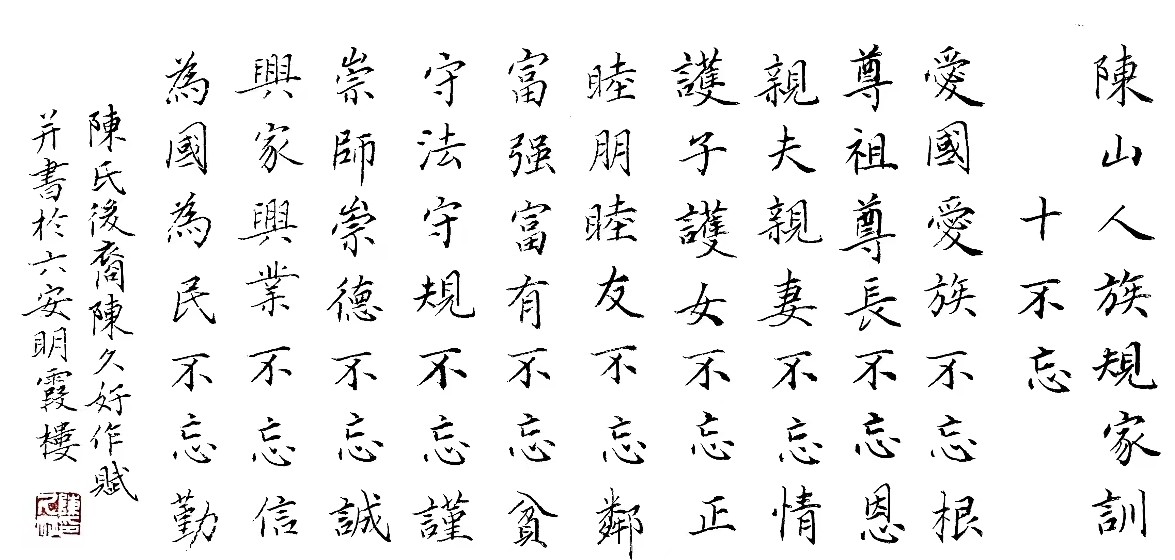 陳山人族規家訓
十不忘
愛國愛族不忘根
尊祖尊長不忘恩
親夫親妻不忘情
護子護女不忘正
睦朋睦友不忘鄰
富强富有不忘貧
守法守規不忘謹
崇師崇德不忘誠
興家興業不忘信
為國為民不忘勤
陳氏後裔陳久好作賦
并書於六安明霞樓